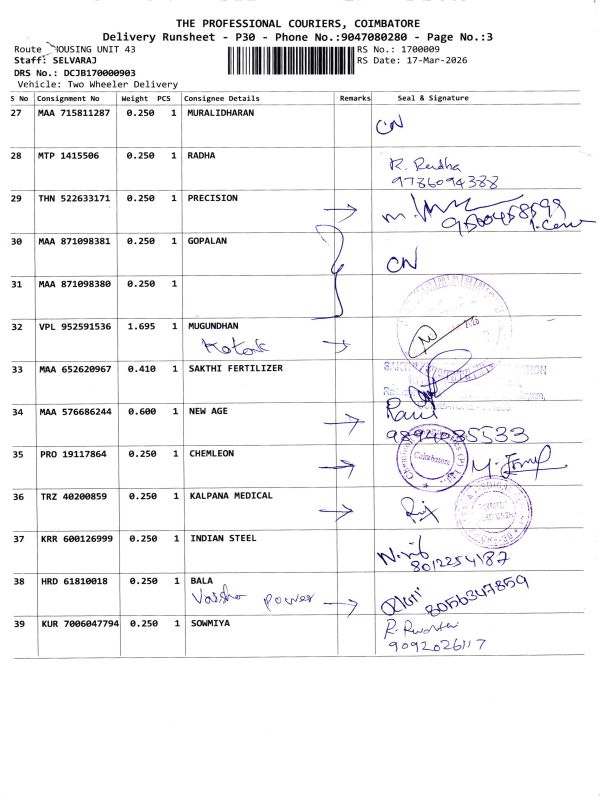 THE PROFESSIONAL COURIERS, COIMBATORE
Delivery Runsheet - P30 - Phone No.:9047080280 - Page No.:3
Route HOUSING UNIT 43 RS No.: 1700009
Staff: SELVARAJ RS Date: 17-Mar-2026
DRS No.: DCJB170000903
Vehicle: Two Wheeler Delivery
S No Consignment No Weight PCS Consignee Details Remarks Seal & Signature
27 MAA 715811287 0.250 1 MURALIDHARAN
CN
28 MTP 1415506 0.250 1 RADHA
R. Radha
9786094388
29 THN 522633171 0.250 1 PRECISION
9500458599
30 MAA 871098381 0.250 1 GOPALAN
CN
31 MAA 871098380 0.250 1
32 VPL 952591536 1.695 1 MUGUNDHAN
Kotak
33 MAA 652620967 0.410 1 SAKTHI FERTILIZER
34 MAA 576686244 0.600 1 NEW AGE
9894035533
35 PRO 19117864 0.250 1 CHEMLEON
Coimbatore
36 TRZ 40200859 0.250 1 KALPANA MEDICAL
37 KRR 600126999 0.250 1 INDIAN STEEL
8012254187
38 HRD 61810018 0.250 1 BALA
power 8056347859
39 KUR 7006047794 0.250 1 SOWMIYA
9092026117